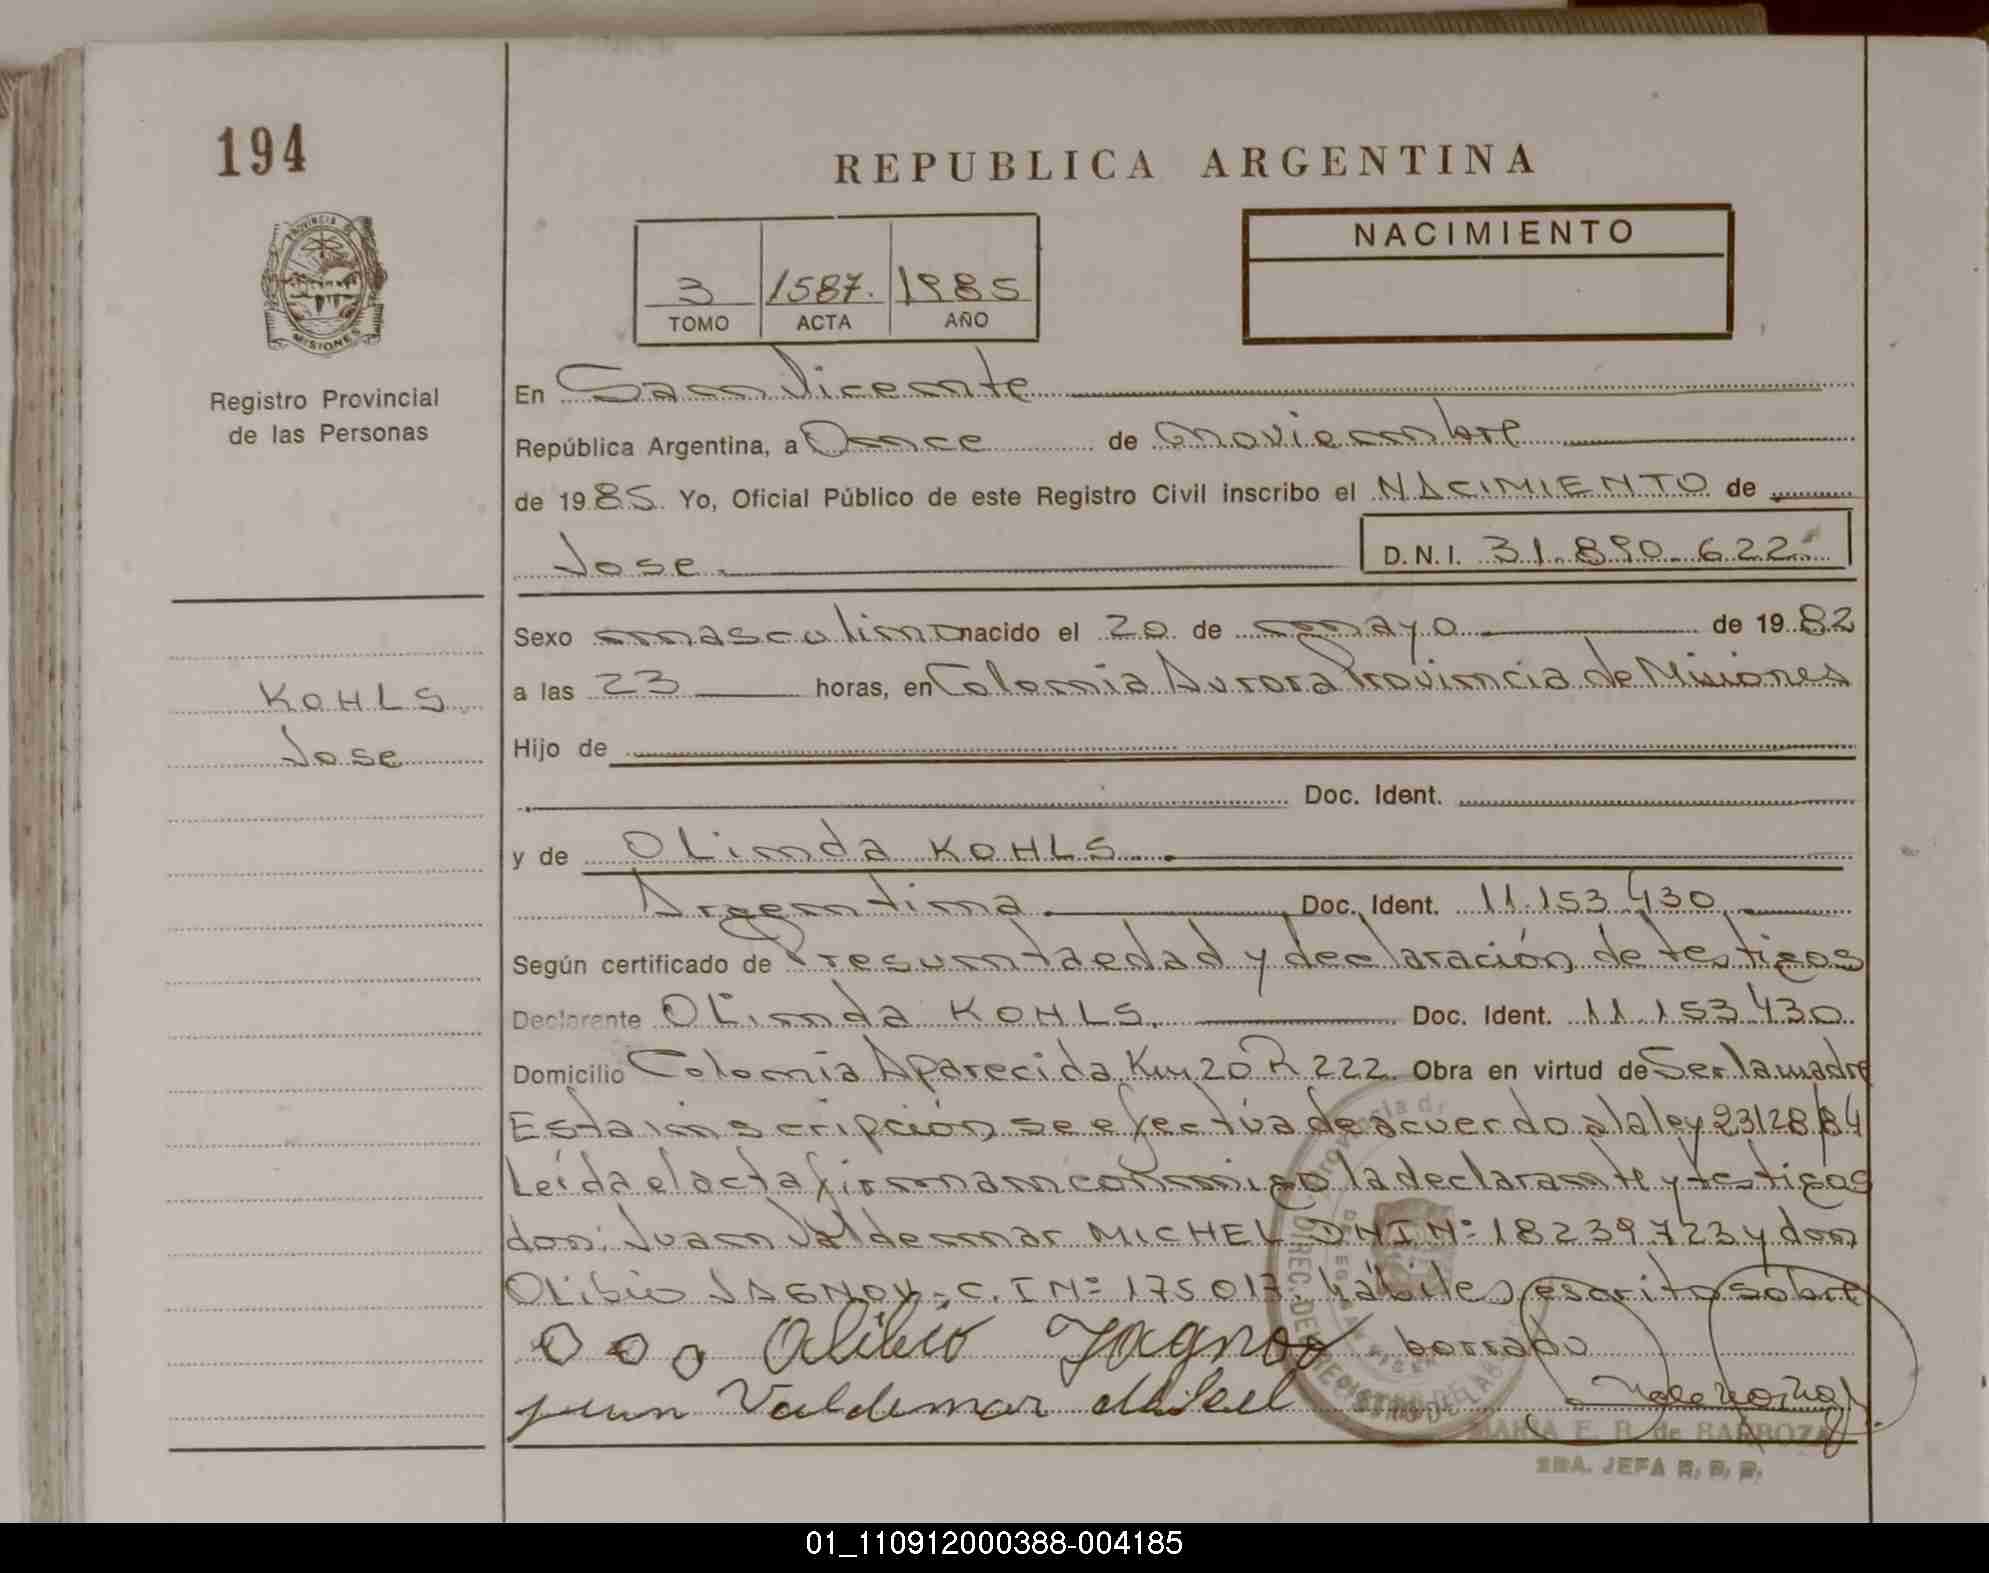 194
REPUBLICA ARGENTINA
PROVINCIA DE
MISIONES
Registro Provincial
de las Personas
3 1587. 1985
TOMO ACTA AÑO
NACIMIENTO
En San Vicente
República Argentina, a Once de noviembre
de 1985. Yo, Oficial Público de este Registro Civil inscribo el NACIMIENTO de
Jose. D.N.I. 31.890.622
Sexo masculino nacido el 20 de mayo de 1982
a las 23 horas, en Colonia Aurora Provincia de Misiones
KOHLS
Jose
Hijo de
Doc. Ident.
y de OLinda KOHLS.
Argentina Doc. Ident. 11.153.430
Según certificado de Presunta edad y declaración de testigos
Declarante OLinda KOHLS. Doc. Ident. 11.153.430
Domicilio Colonia Aparecida Km 20 R 222 Obra en virtud de Ser la madre
Esta inscripción se efectúa de acuerdo a la ley 23128/84
Leída el acta firman conmigo la declarante y testigos
don: Juan Valdemar MICHEL DNI Nº 18239723 y don
OLibio JAGNOW. C.I Nº 175017. hábiles, escrito sobre
Olibio Jagnow borrado
Juan Valdemar Mikel
MARIA E. R. de BARBOZA
SRA. JEFA R. P. P.
01_110912000388-004185